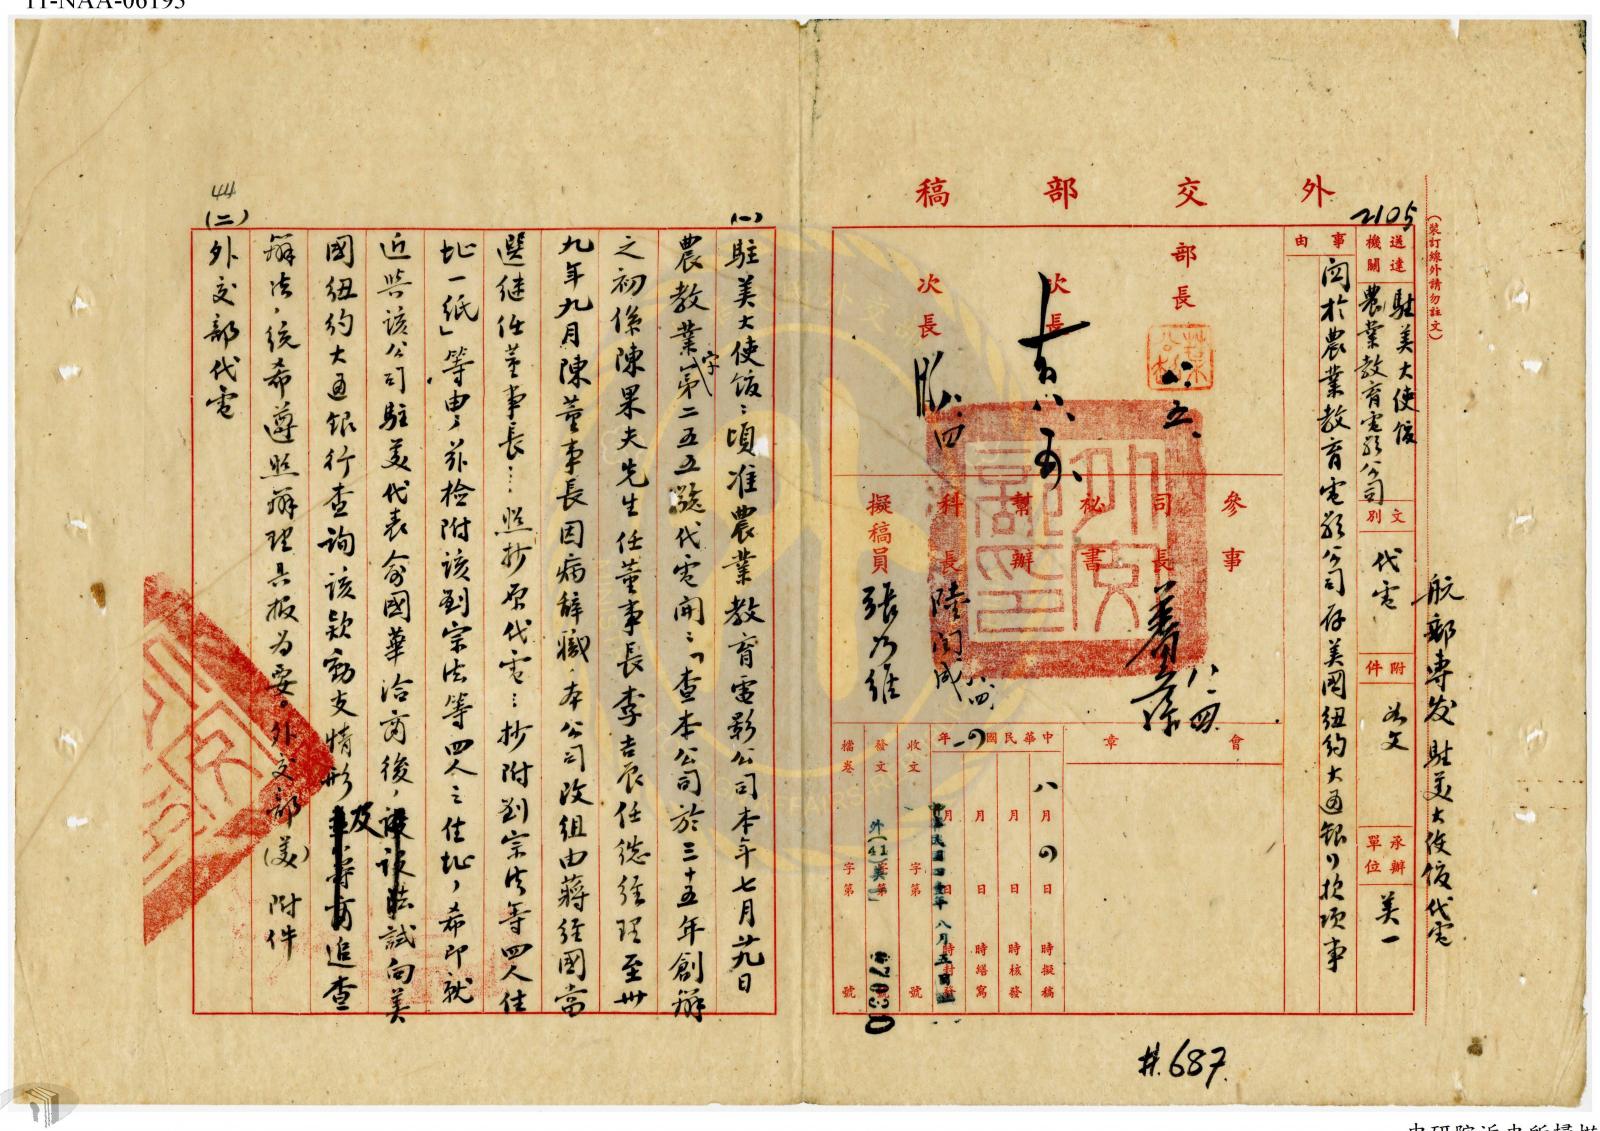 11-NAA-06195
外交部稿
2105
(裝訂線外請勿註文)
航郵專发駐美大使館代電
送達機關
駐美大使館
農業教育電影公司
文別
代電
附件
如文
承辦單位
美一
事由
関於農業教育電影公司存美國紐約大通銀行款項事
部長
八、五、
次長
次長
八、四
參事
司長
八、四
秘書
幫辦
科長
陸
八、四
擬稿員
張乃維
會章
中華民國四一年
八月四日 時擬稿
月 日 時核發
月 日 時繕寫
月 日 時封發
中華民國四十一年八月五日
收文 字第 號
發文 字第 號
外(41)美一
檔卷 字第 號
#.687
(一)
駐美大使館:頃准農業教育電影公司本年七月廿九日
農教業字第二五五號代電開:「查本公司於三十五年創辦
之初係陳果夫先生任董事長李吉辰任總經理至卅
九年九月陳董事長因病辭職,本公司改組由蔣經國當
選继任董事長…照抄原代電…抄附劉宗法等四人住
址一紙」等由,兹檢附該劉宗法等四人之住址,希即就
近與該公司駐美代表俞國華洽商後,設法試向美
國紐約大通銀行查詢該款動支情形及追查
辦法,统希遵照辦理具报為要。外交部(美)附件
44
(二)
外交部代電